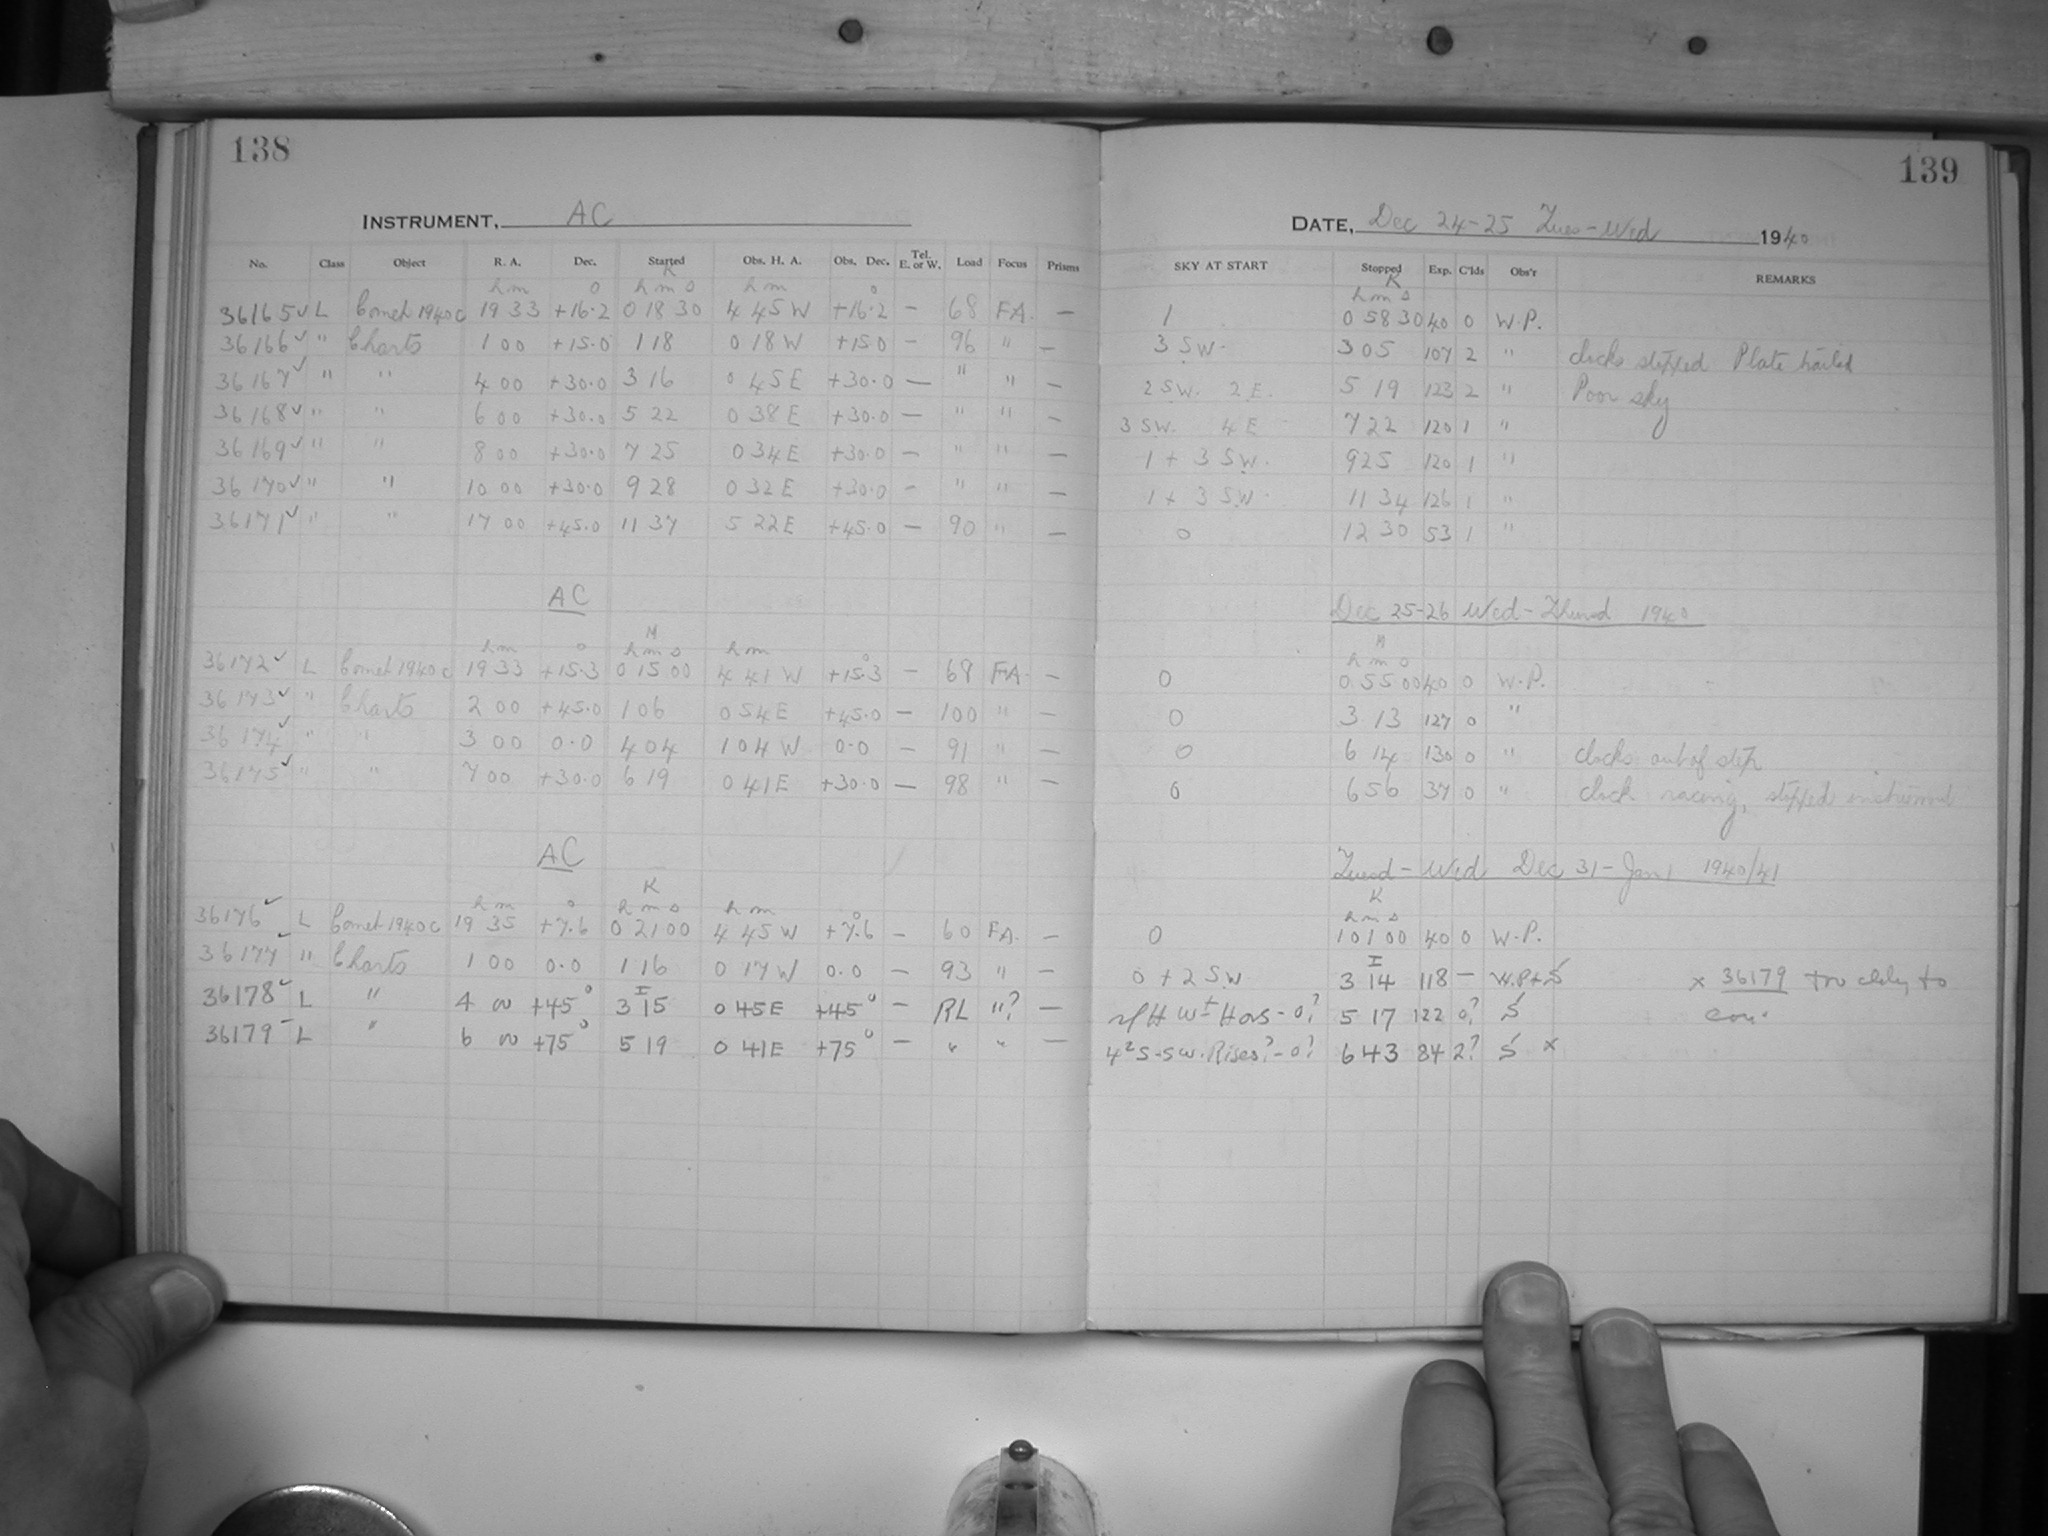 138
INSTRUMENT, AC
No. Class Object R. A. Dec. Started Obs. H. A. Obs. Dec. Tel. E. or W. Load Focus Prisms
K
h m o h m s h m o
36165 ✓ L Comet 1940c 19 33 +16.2 0 18 30 4 45 W +16.2 — 68 FA. —
36166 ✓ " Charts 1 00 +15.0 1 18 0 18 W +15.0 — 96 " —
36167 ✓ " " 4 00 +30.0 3 16 0 45 E +30.0 — " " —
36168 ✓ " " 6 00 +30.0 5 22 0 38 E +30.0 — " " —
36169 ✓ " " 8 00 +30.0 7 25 0 34 E +30.0 — " " —
36170 ✓ " " 10 00 +30.0 9 28 0 32 E +30.0 — " " —
36171 ✓ " " 17 00 +45.0 11 37 5 22 E +45.0 — 90 " —
AC
M
h m o h m s h m o
36172 ✓ L Comet 1940c 19 33 +15.3 0 15 00 4 41 W +15.3 — 68 FA. —
36173 ✓ " Charts 2 00 +45.0 1 06 0 54 E +45.0 — 100 " —
36174 ✓ " " 3 00 0.0 4 04 1 04 W 0.0 — 91 " —
36175 ✓ " " 7 00 +30.0 6 19 0 41 E +30.0 — 98 " —
AC
K
h m o h m s h m o
36176 ✓ L Comet 1940c 19 35 +7.6 0 21 00 4 45 W +7.6 — 60 FA. —
36177 ✓ " Charts 1 00 0.0 1 16 0 17 W 0.0 — 93 " —
I
36178 ✓ L " 4 00 +45° 3 15 0 45 E +45° — RL "? —
36179 – L " 6 00 +75° 5 19 0 41 E +75° — " " —
139
DATE, Dec 24-25 Tues-Wed 1940
SKY AT START Stopped Exp. C'lds Obs'r REMARKS
K
h m s
1 0 58 30 40 0 W.P.
3 SW. 3 05 107 2 " clocks stopped Plate trailed
2 SW. 2 E. 5 19 123 2 " Poor sky
3 SW. 4 E 7 22 120 1 "
1 + 3 SW. 9 25 120 1 "
1 + 3 SW. 11 34 126 1 "
0 12 30 53 1 "
Dec 25-26 Wed-Thursd 1940
M
h m s
0 0 55 00 40 0 W.P.
0 3 13 127 0 "
0 6 14 130 0 " clocks out of step
0 6 56 37 0 " clock racing, stopped instrument
Tuesd-Wed Dec 31-Jan 1 1940/41
K
h m s
0 1 01 00 40 0 W.P.
I
0 + 2 SW 3 14 118 — W.P.+S x 36179 too cldy to
Hors-0? 5 17 122 0? S con.
4² S-SW. Rises?-0? 6 43 84 2? S x